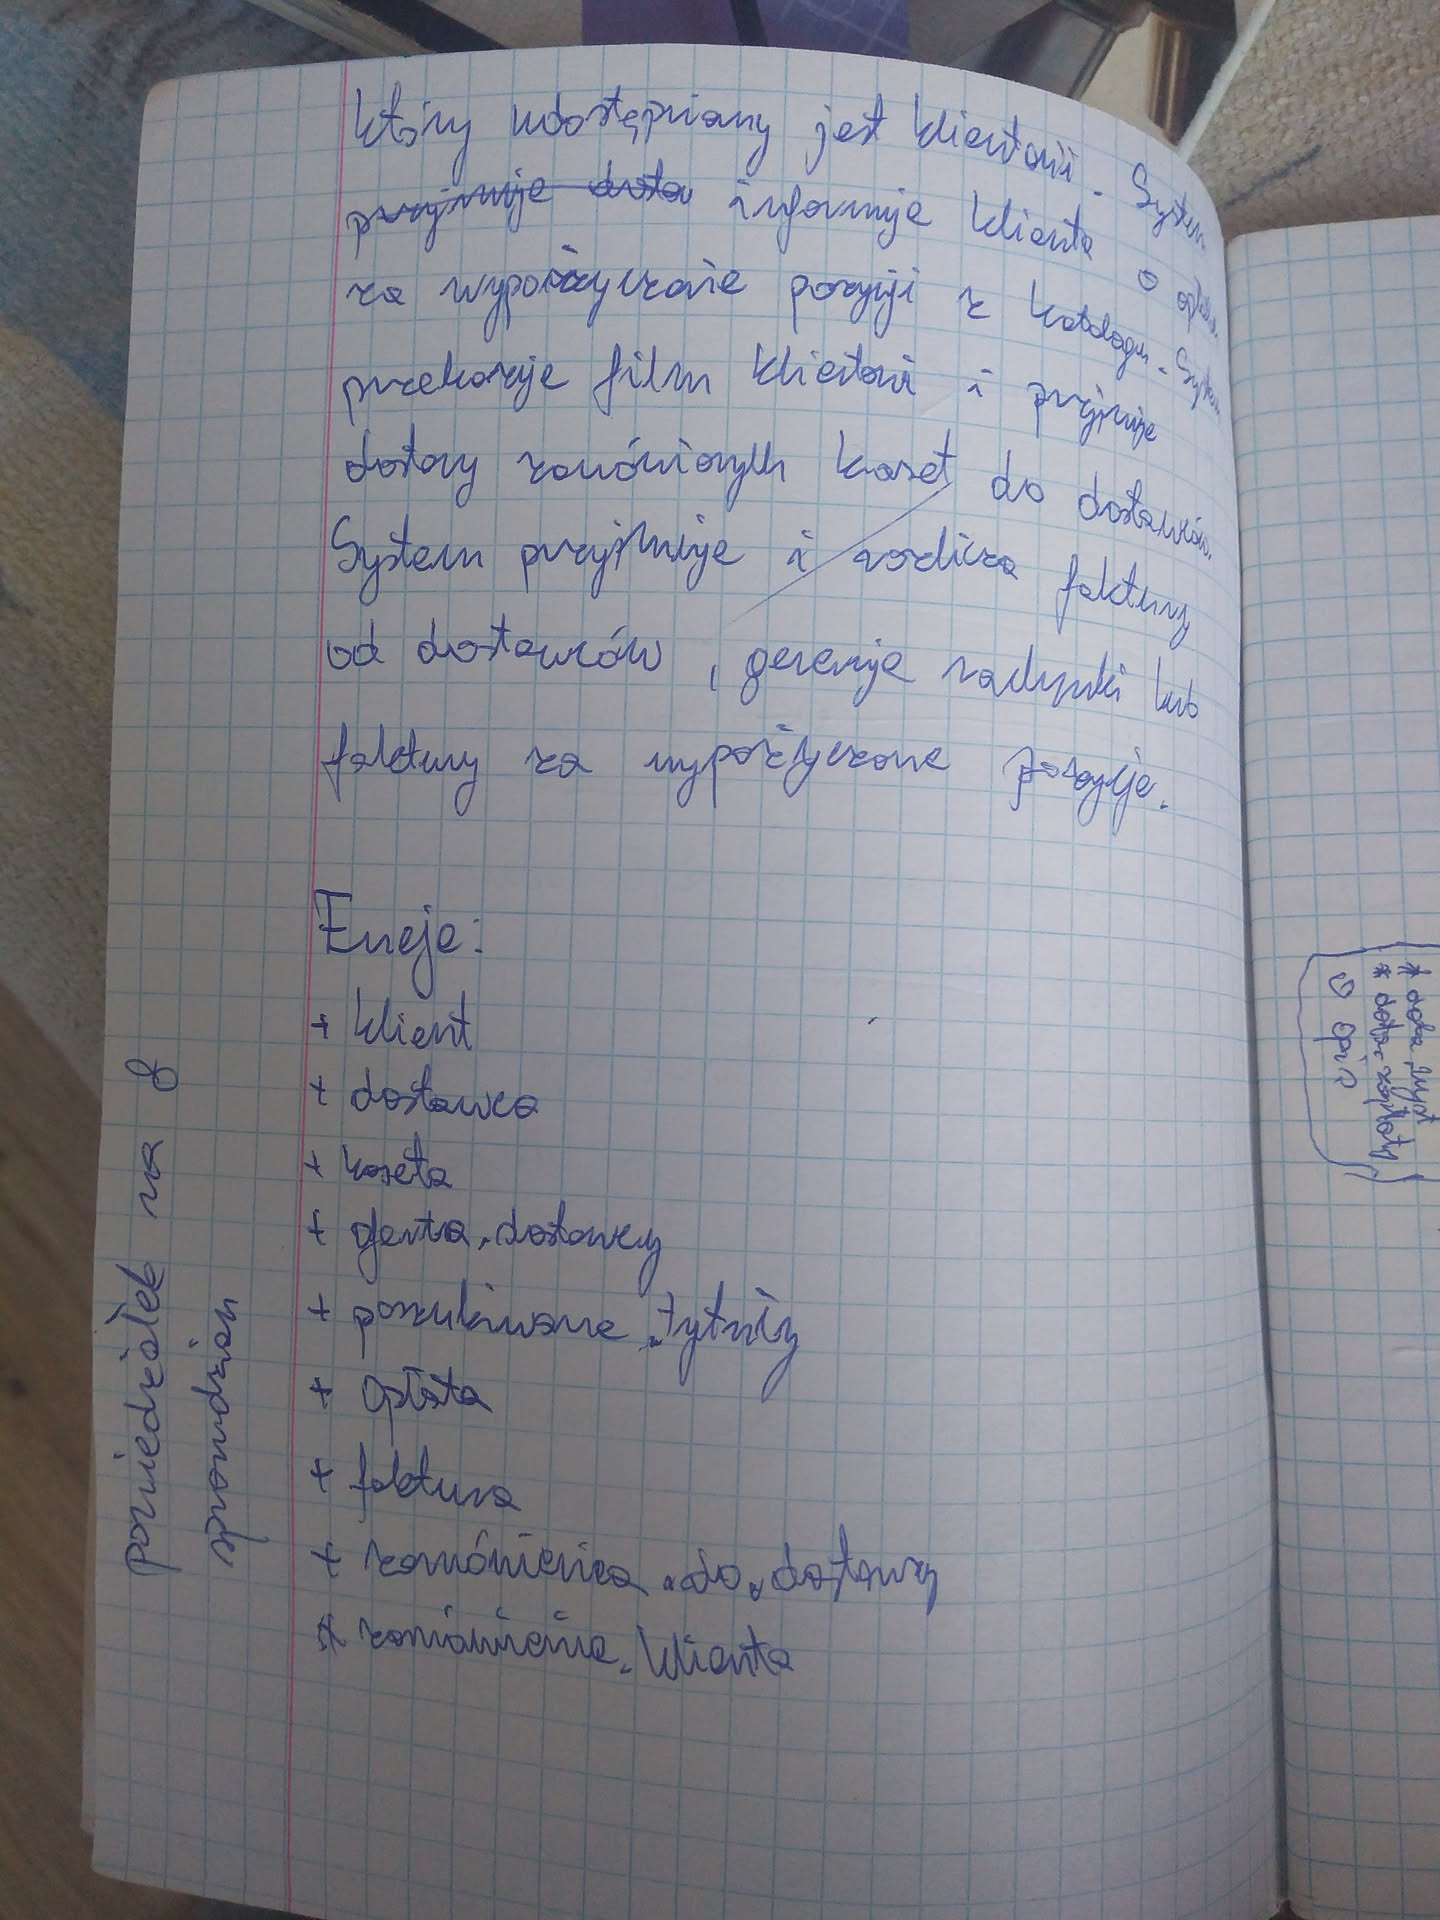 który udostępniany jest klientowi. System
przyjmuje dosta informuje klienta o opłacie
za wypożyczanie pozycji z katalogu. System
przekazuje film klientowi i przyjmuje
dostawy zamówionych kaset do dostawców.
System przyjmuje i rozlicza faktury
od dostawców, generuje rachunki lub
faktury za wypożyczone pozycje.
Encje:
+ klient
+ dostawca
+ kaseta
+ oferta_dostawcy
+ poszukiwane_tytuły
+ opłata
+ faktura
+ zamówienia_do_dostawcy
* zamówienie_klienta
poniedziałek na 8
sprawdzian
* data_wyp
* data_zapłaty
o opis